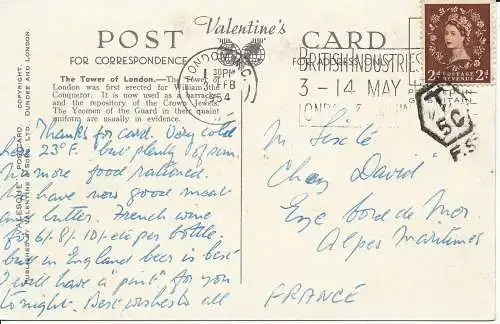 Valentine's
POST CARD
FOR CORRESPONDENCE
FOR ADDRESS
The Tower of London.—The Tower of
London was first erected for William the
Conqueror. It is now used as a barracks
and the repository of the Crown Jewels.
The Yeomen of the Guard in their quaint
uniforms are usually in evidence.
VALENTINE'S POSTCARD COPYRIGHT.
PUBLISHED BY VALENTINE & SONS, LTD., DUNDEE AND LONDON.
LONDON W.C.
30 PM
3 FEB
1954
BRITISH INDUSTRIES
3 - 14 MAY
2d POSTAGE REVENUE 2d
T
5C
F.S.
Thanks for card. Very cold
here 23°F. but plenty of sun.
No more food rationed.
We have now good meat
and butter. French wine
for 6/- 8/- 10/- etc per bottle.
but in England beer is best
I will have a "pint" for you
tonight. Best wishes to all
M.
Chez David
Eze bord de Mer
Alpes Maritimes
FRANCE